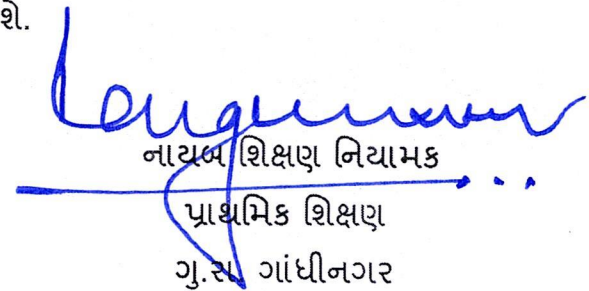 શે.
નાયબ શિક્ષણ નિયામક
પ્રાથમિક શિક્ષણ
ગુ.રા. ગાંધીનગર